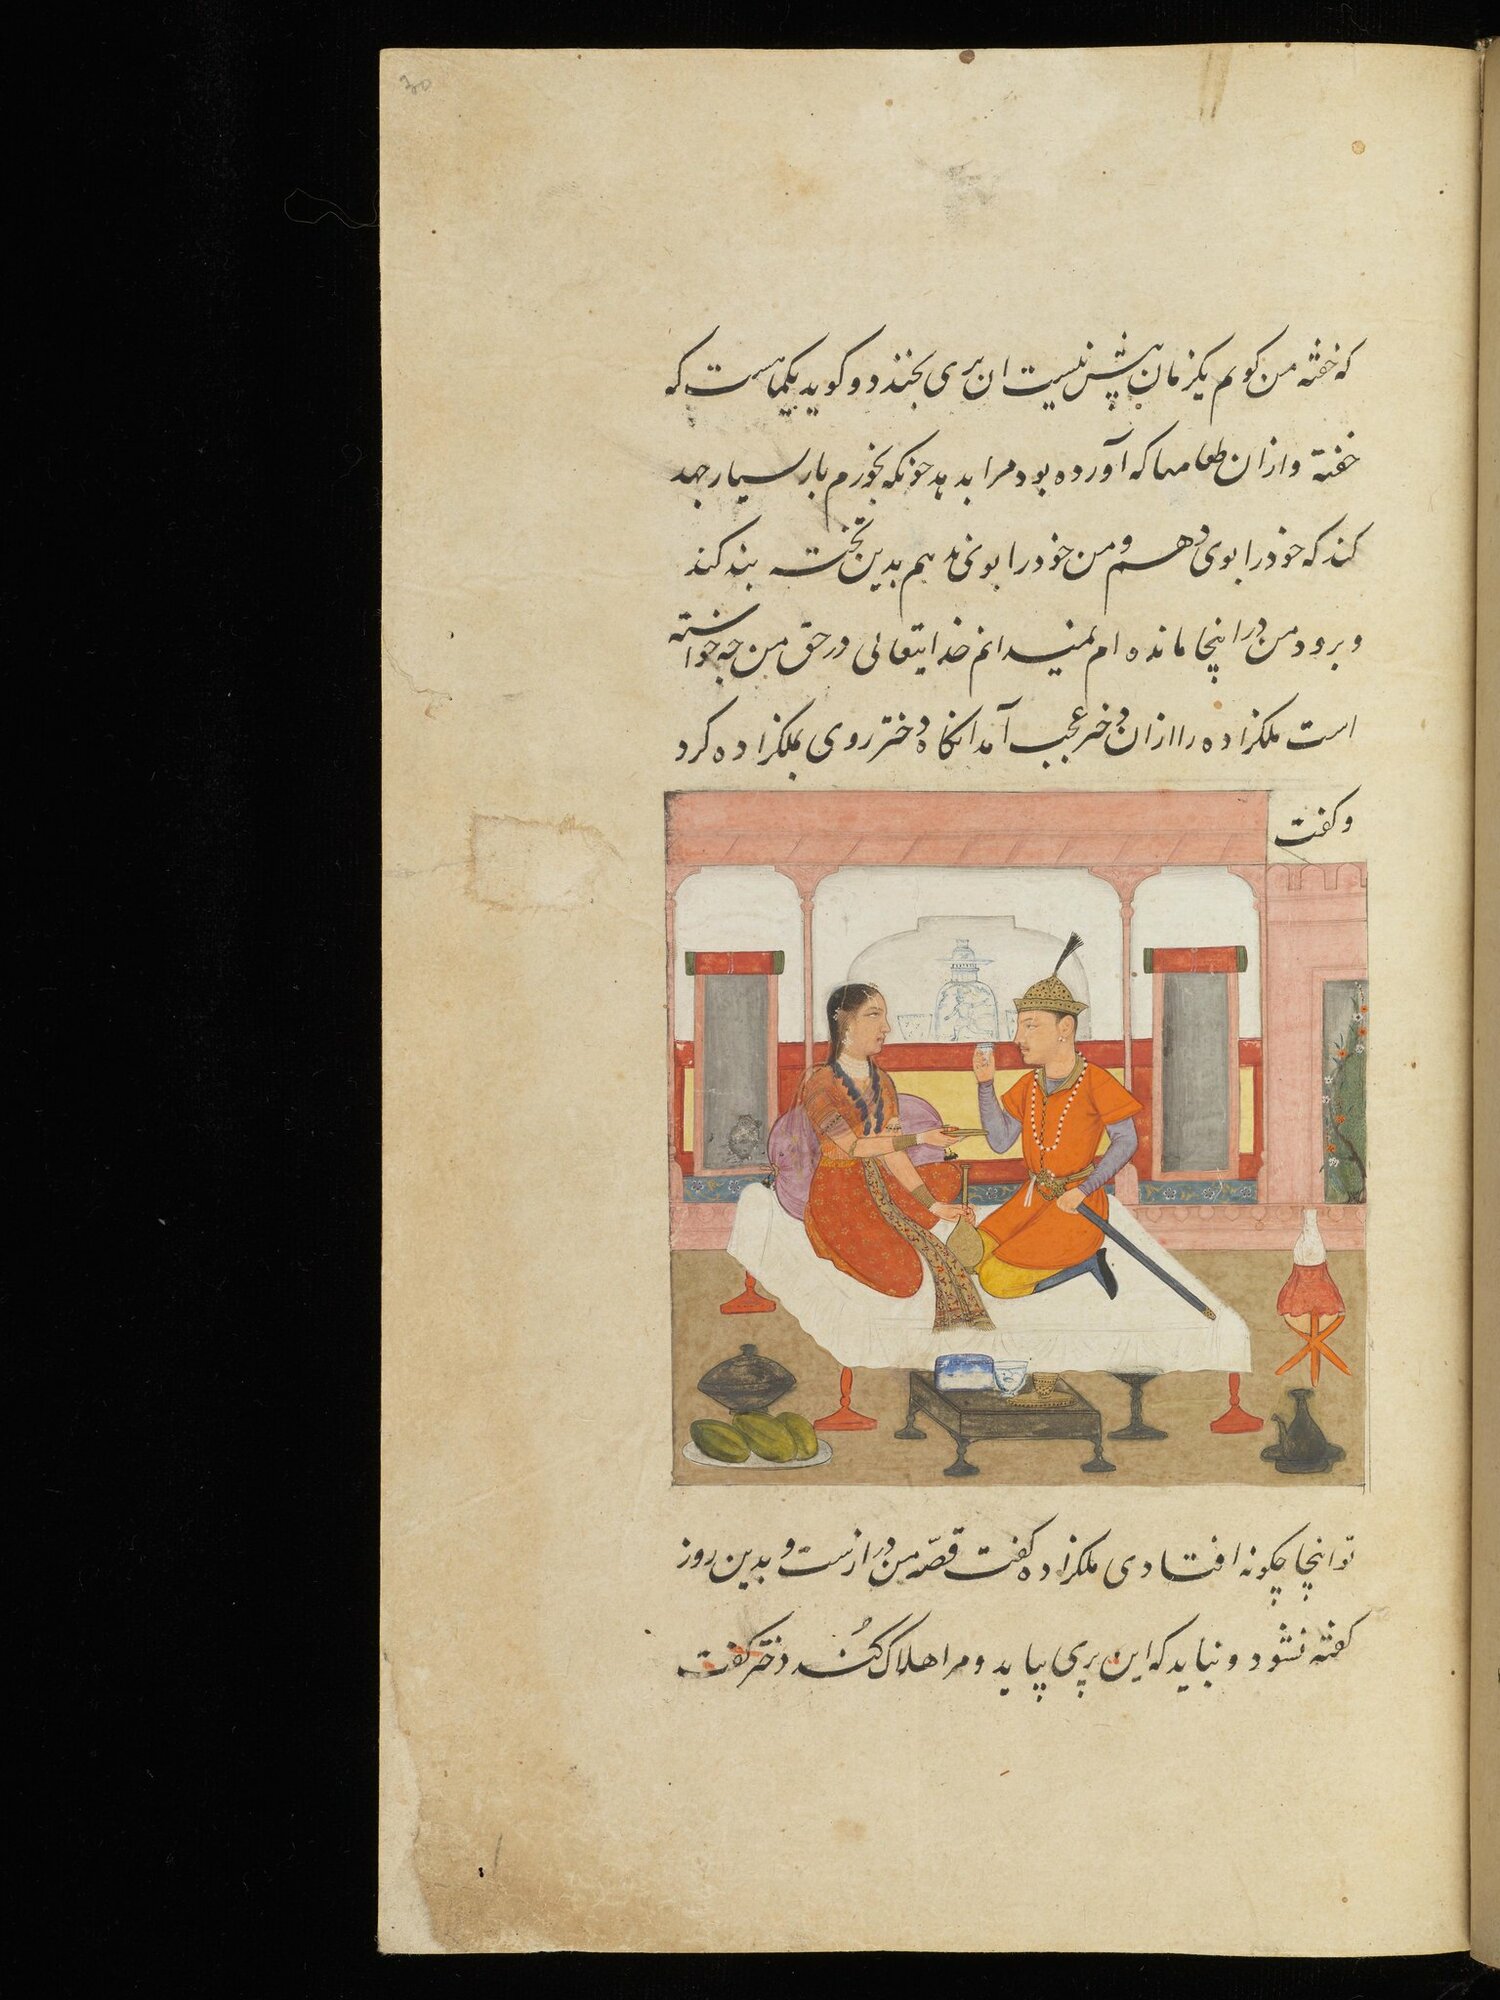 که خفته من کویم یکزمان پیش نیست ان پری بخندد و کوید یکماهست که
خفته وازان طعامها که آورده بود مرا بدهد چونکه بخورم بار بسیار جهد
کند که خود را بوی دهم و من خود را بوی ندهم بدین تخته بند کند
و برود من در اینجا مانده ام نمیدانم خدایتعالی در حق من چه خواسته
است ملکزاده را ازان دختر عجب آمد انکاه دختر روی بملکزاده کرد
و کفت
تو اینجا چکونه افتادی ملکزاده کفت قصّه من درازست و بدین روز
کفته نشود و نباید که این پری بیاید و مرا هلاک کُند دختر کفت